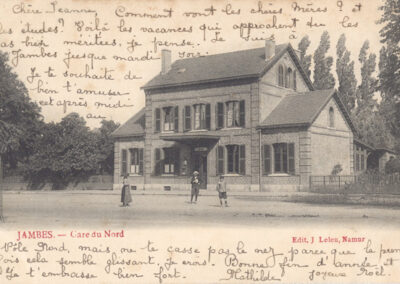 Chère Jeanne, Comment vont les chères Mères? et
les études? Voilà les vacances qui approchent ou les
as bien méritées, je pense. Je suis à
Jambes jusque mardi soir.
Je te souhaite de
bien t'amuser
et après midi
au
JAMBES. — Gare du Nord
Edit, J. Leleu, Namur
Pôle Nord, mais ou te casse pas le nez parce que la prem
fois cela semble glissant, je crois. Bonne fin d'année et
Je t'embrasse bien fort. Mathilde Joyeux Noël.